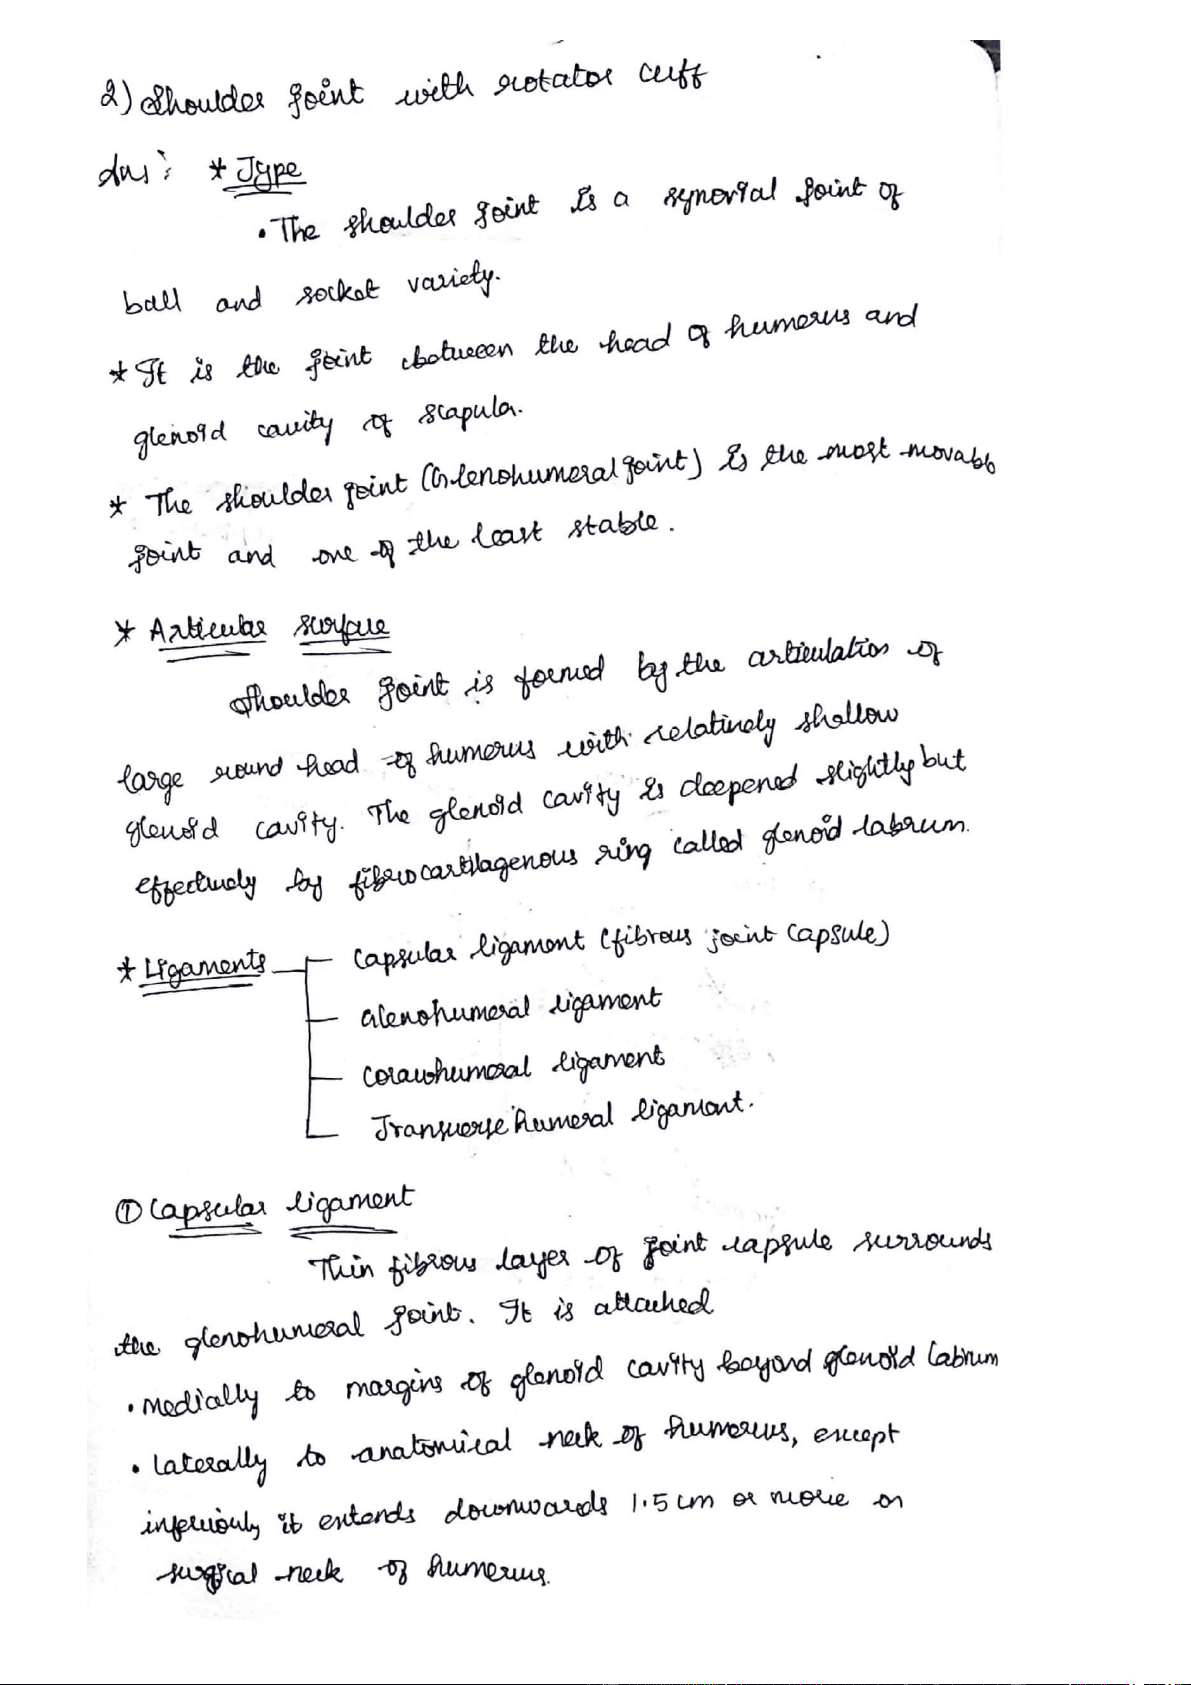 2) Shoulder joint with rotator cuff
Ans: * Type
• The shoulder joint is a synovial joint of
ball and socket variety.
* It is the joint between the head of humerus and
glenoid cavity of scapula.
* The shoulder joint (Glenohumeral joint) is the most movable
joint and one of the least stable.
* Articular surface
Shoulder joint is formed by the articulation of
large round head of humerus with relatively shallow
glenoid cavity. The glenoid cavity is deepened slightly but
effectively by fibrocartilagenous ring called glenoid labrum.
* Ligaments
Capsular ligament (fibrous joint capsule)
Glenohumeral ligament
Coracohumeral ligament
Transverse humeral ligament.
① Capsular ligament
Thin fibrous layer of joint capsule surrounds
the glenohumeral joint. It is attached
• Medially to margins of glenoid cavity beyond glenoid labrum
• Laterally to anatomical neck of humerus, except
inferiorly it extends downwards 1.5 cm or more on
surgical neck of humerus.